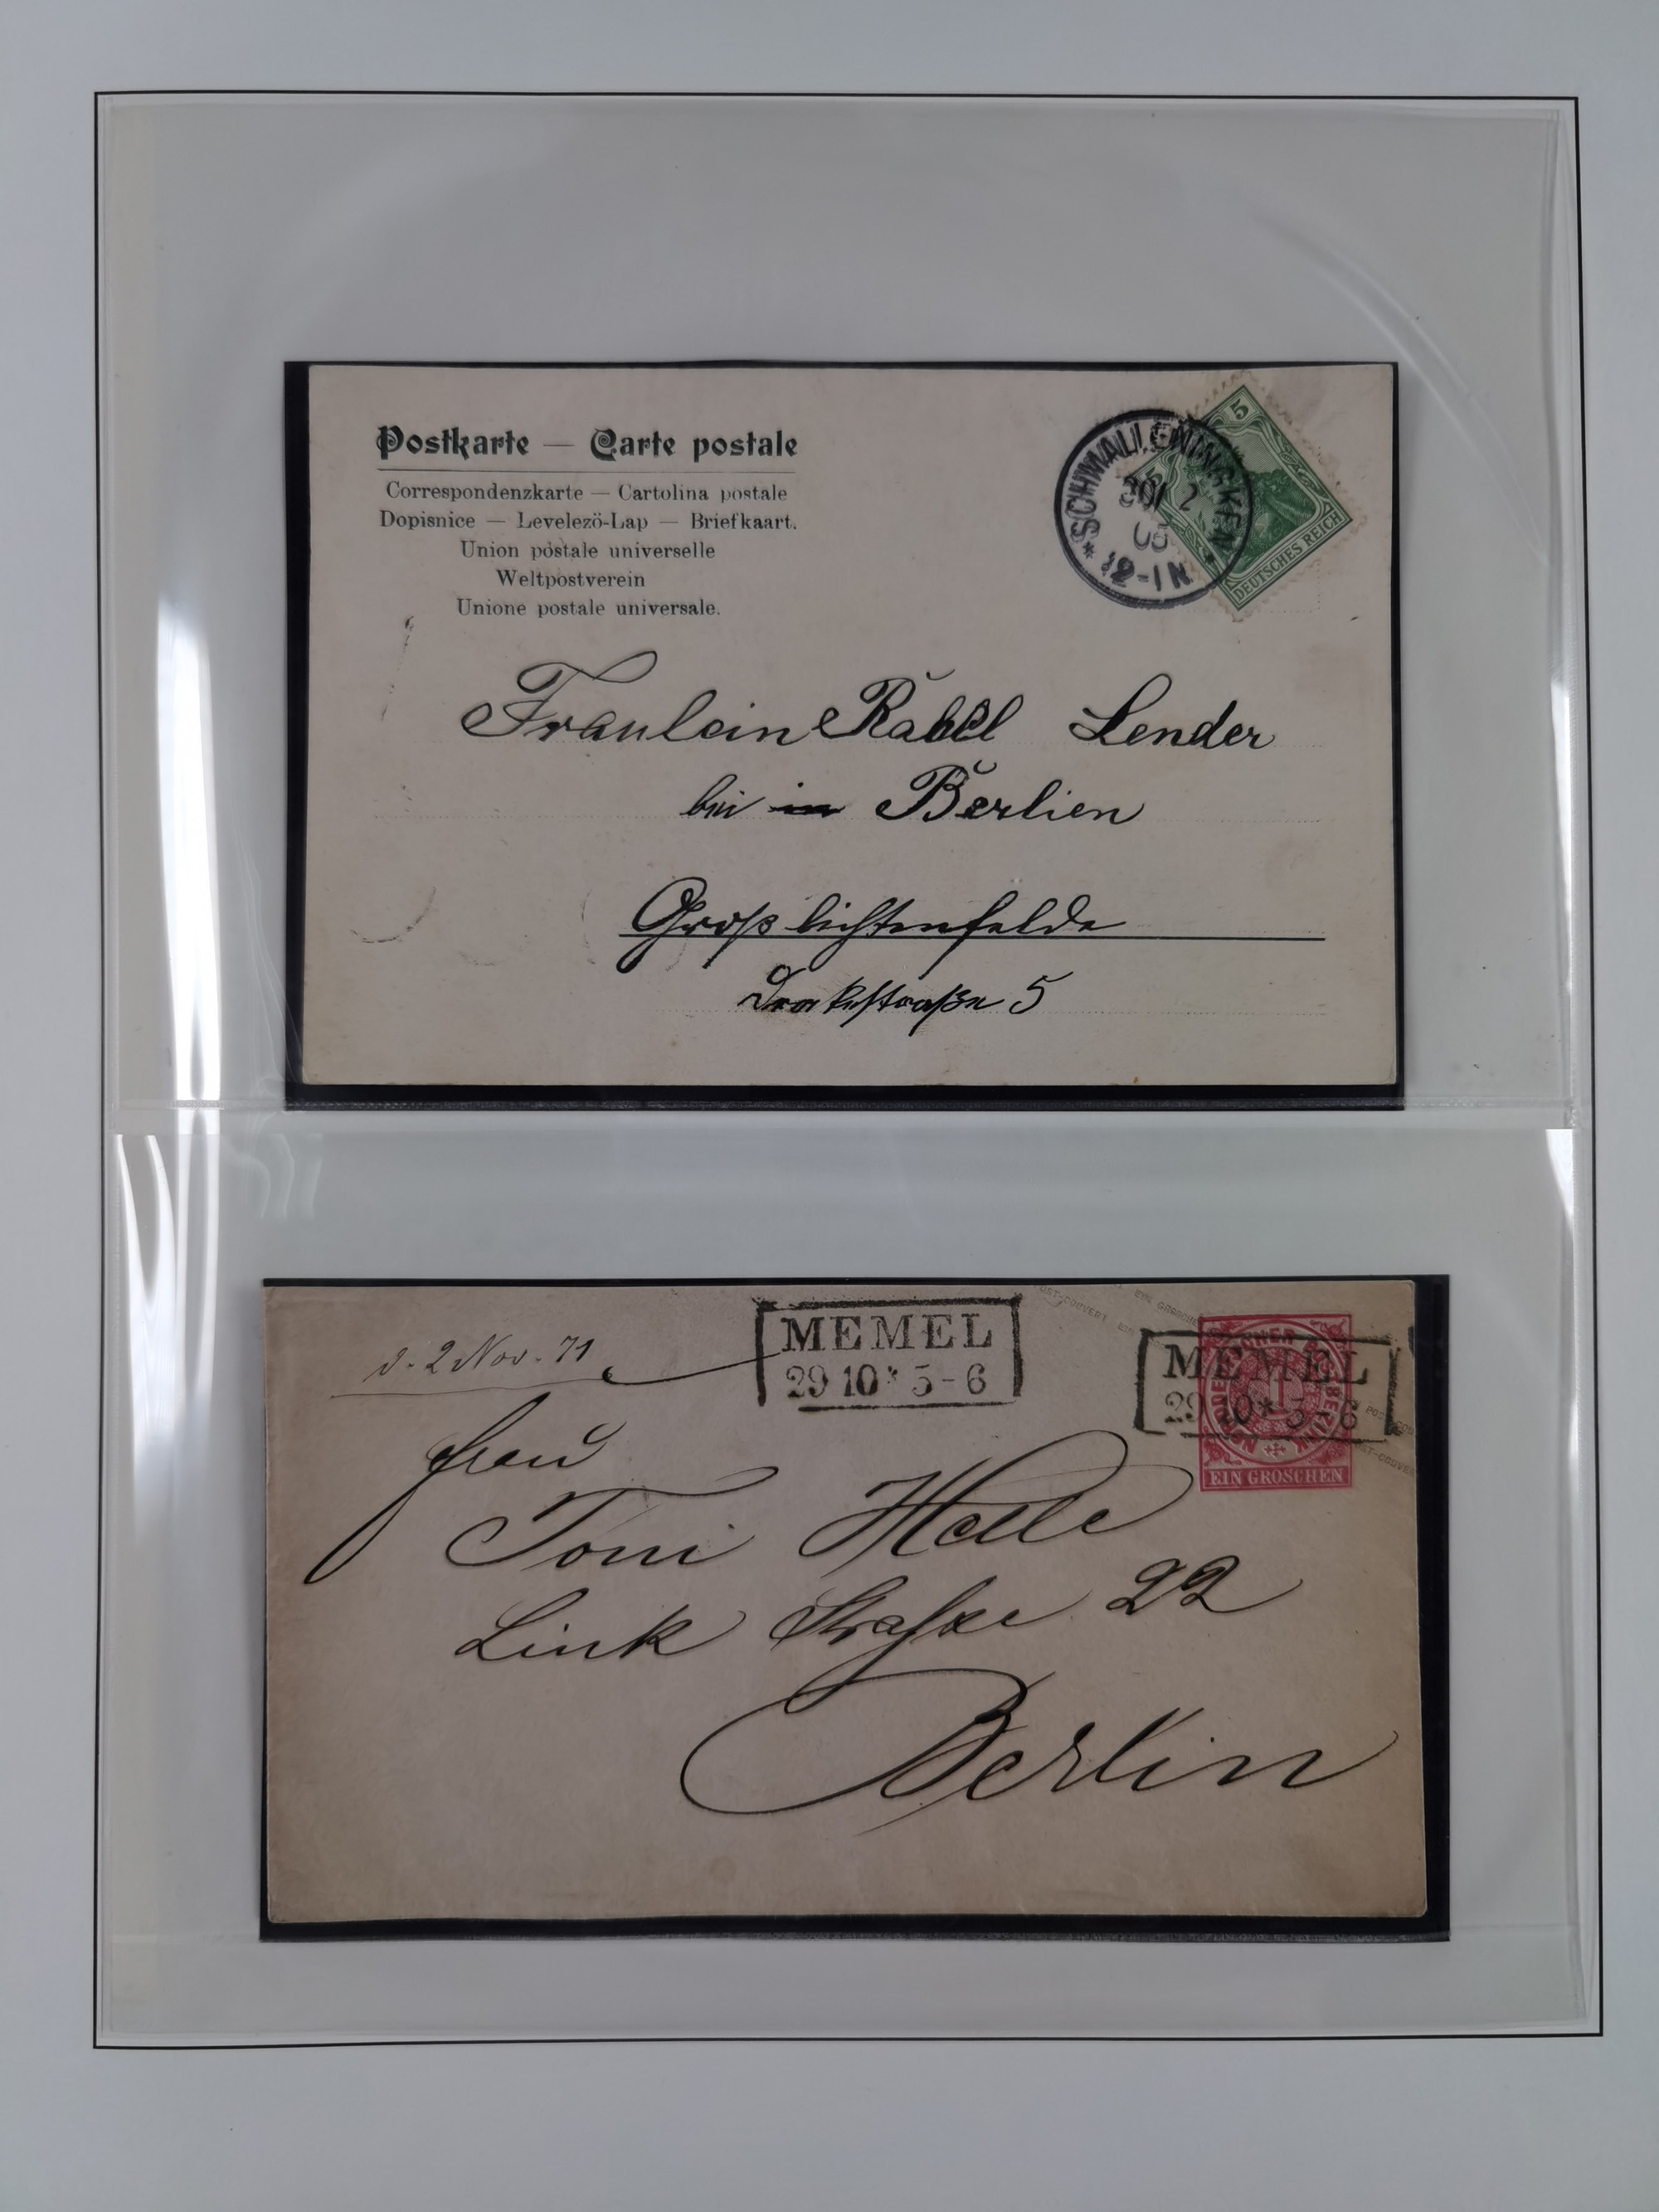 Postkarte — Carte postale
Correspondenzkarte — Cartolina postale
Dopisnice — Levelezö-Lap — Briefkaart.
Union postale universelle
Weltpostverein
Unione postale universale.
* SCHWALLENINGKEN *
2
05
12-1N
5
DEUTSCHES REICH
Fraulein Lender
bei in Berlien
Großlichtenfelde
Drakestraße 5
d. 2 Nov. 71
MEMEL
29 10 * 5-6
MEMEL
29 10 * 5-6
1
EIN GROSCHEN
Frau
Toni Halle
Link Straße 22
Berlin